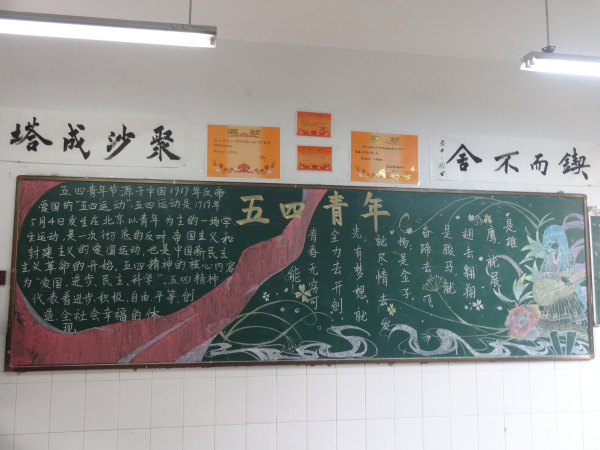 聚沙成塔
鍥而不舍
五四青年
五四青年节源于中国1919年反帝
爱国的"五四运动",五四运动是1919年
5月4日发生在北京以青年为主的一场学
生运动,是一次彻底的反对帝国主义和
封建主义的爱国运动,也是中国新民主
主义革命的开始。五四精神的核心内容
为"爱国、进步、民主、科学",五四精神
代表着进步、积极、自由、平等、创
造全社会幸福的体
现。
是雄
鹰,就展
翅去翱翔
是骏马就
奋蹄去飞
扬,是金子,
就尽情去发
光,有梦想,就
全力去开创
青春无穷可
能。